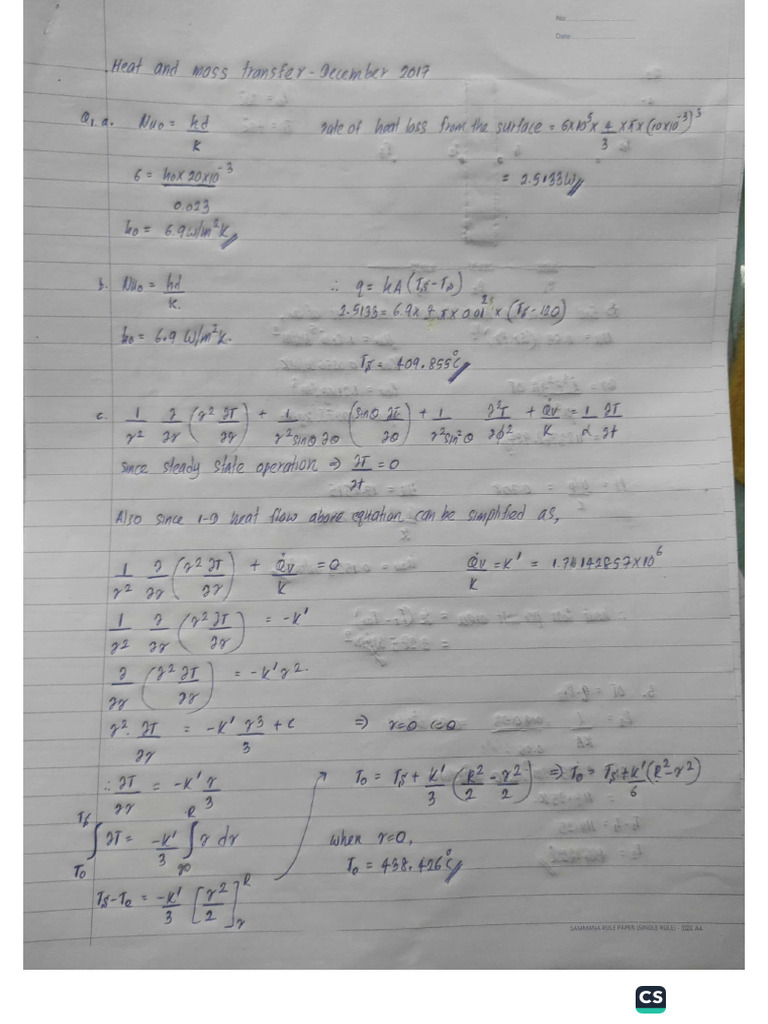 No:
Date:
Heat and mass transfer - December 2017
Q1.a. Nu₀ = hd/K rate of heat loss from the surface = 6×10⁵ × 4/3 × π × (10×10⁻³)³
6 = h₀×20×10⁻³/0.023 = 2.5133W
h₀ = 6.9 W/m²K
b. Nu₀ = hd/K. ∴ q = hA(Ts-T∞)
h₀ = 6.9 W/m²K. 2.5133 = 6.9 × 4π × 0.01² × (Ts-120)
Ts = 409.855°C
c. 1/r² ∂/∂r (r² ∂T/∂r) + 1/r² sinθ ∂θ (sinθ ∂T/∂θ) + 1/r² sin²θ ∂²T/∂ϕ² + Q̇v/K = 1/α ∂T/∂t
since steady state operation ⇒ ∂T/∂t = 0
Also since 1-D heat flow above equation can be simplified as,
1/r² ∂/∂r (r² ∂T/∂r) + Q̇v/K = 0 Q̇v/K = K' = 1.76142857×10⁶
1/r² ∂/∂r (r² ∂T/∂r) = -K'
∂/∂r (r² ∂T/∂r) = -K'r².
r². ∂T/∂r = -K' r³/3 + c ⇒ r=0 c=0
∴ ∂T/∂r = -K' r/3 T₀ = Ts + K'/3 (R²/2 - r²/2) ⇒ T₀ = Ts + K'/6 (R²-r²)
∫T₀^Ts ∂T = -K'/3 ∫r^R r dr when r=0,
T₀ = 438.426°C
Ts-T₀ = -K'/3 [r²/2]r^R
SAMMANA RULE PAPER (SINGLE RULE) - SIZE A4
CS